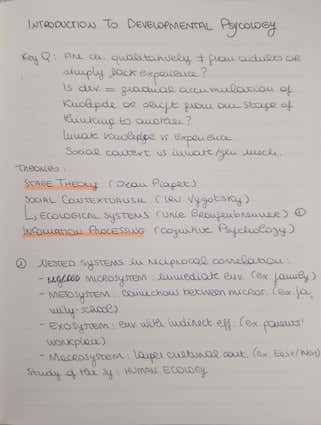 INTRODUCTION TO DEVELOPMENTAL PSYCOLOGY
Key Q: Are ch. qualitatively ≠ from adults or
simply lack experience?
Is dev = gradual accumulation of
knowledge or shift from one stage of
thinking to another?
Innate knowledge vs experience
Social context vs innate/gen mech.
THEORIES:
STAGE THEORY (Jean Piaget)
SOCIAL CONTEXTUALISM (Lev Vygotsky)
↳ ECOLOGICAL SYSTEMS (Urie Bronfenbrenner) ①
INFORMATION PROCESSING (Cognitive Psychology)
① NESTED SYSTEMS in reciprocal correlation:
- MICROSYSTEM: immediate env. (ex family)
- MESOSYSTEM: connections between micros. (ex. fa
mily-school)
- EXOSYSTEM: env with indirect eff. (ex parents'
workplace)
- MACROSYSTEM: larger cultural cont. (ex. East/West)
Study of the sy: HUMAN ECOLOGY